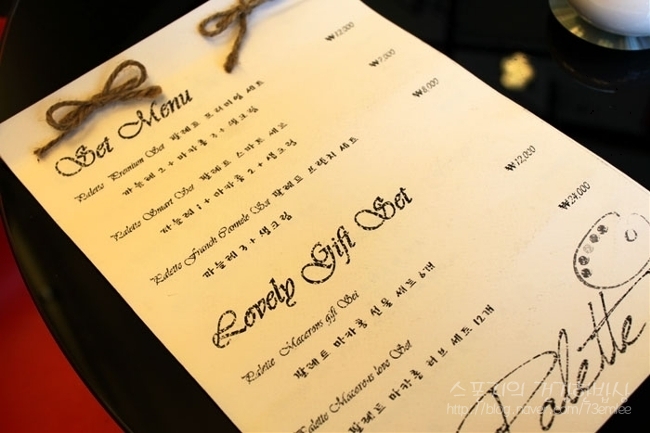 Set Menu
Palette Premium Set 팔레트 프리미엄 세트 ₩12,000
마들렌 2 + 마카롱 3 + 생크림
Palette Smart Set 팔레트 스마트 세트 ₩7,500
마들렌 1 + 마카롱 2 + 생크림
Palette French Set 팔레트 프렌치 세트 ₩6,000
마들렌 3 + 생크림
Lovely Gift Set
Palette Macarons gift Set ₩12,000
팔레트 마카롱 선물 세트 6개
Palette Macarons love Set ₩24,000
팔레트 마카롱 러브 세트 12개
Palette